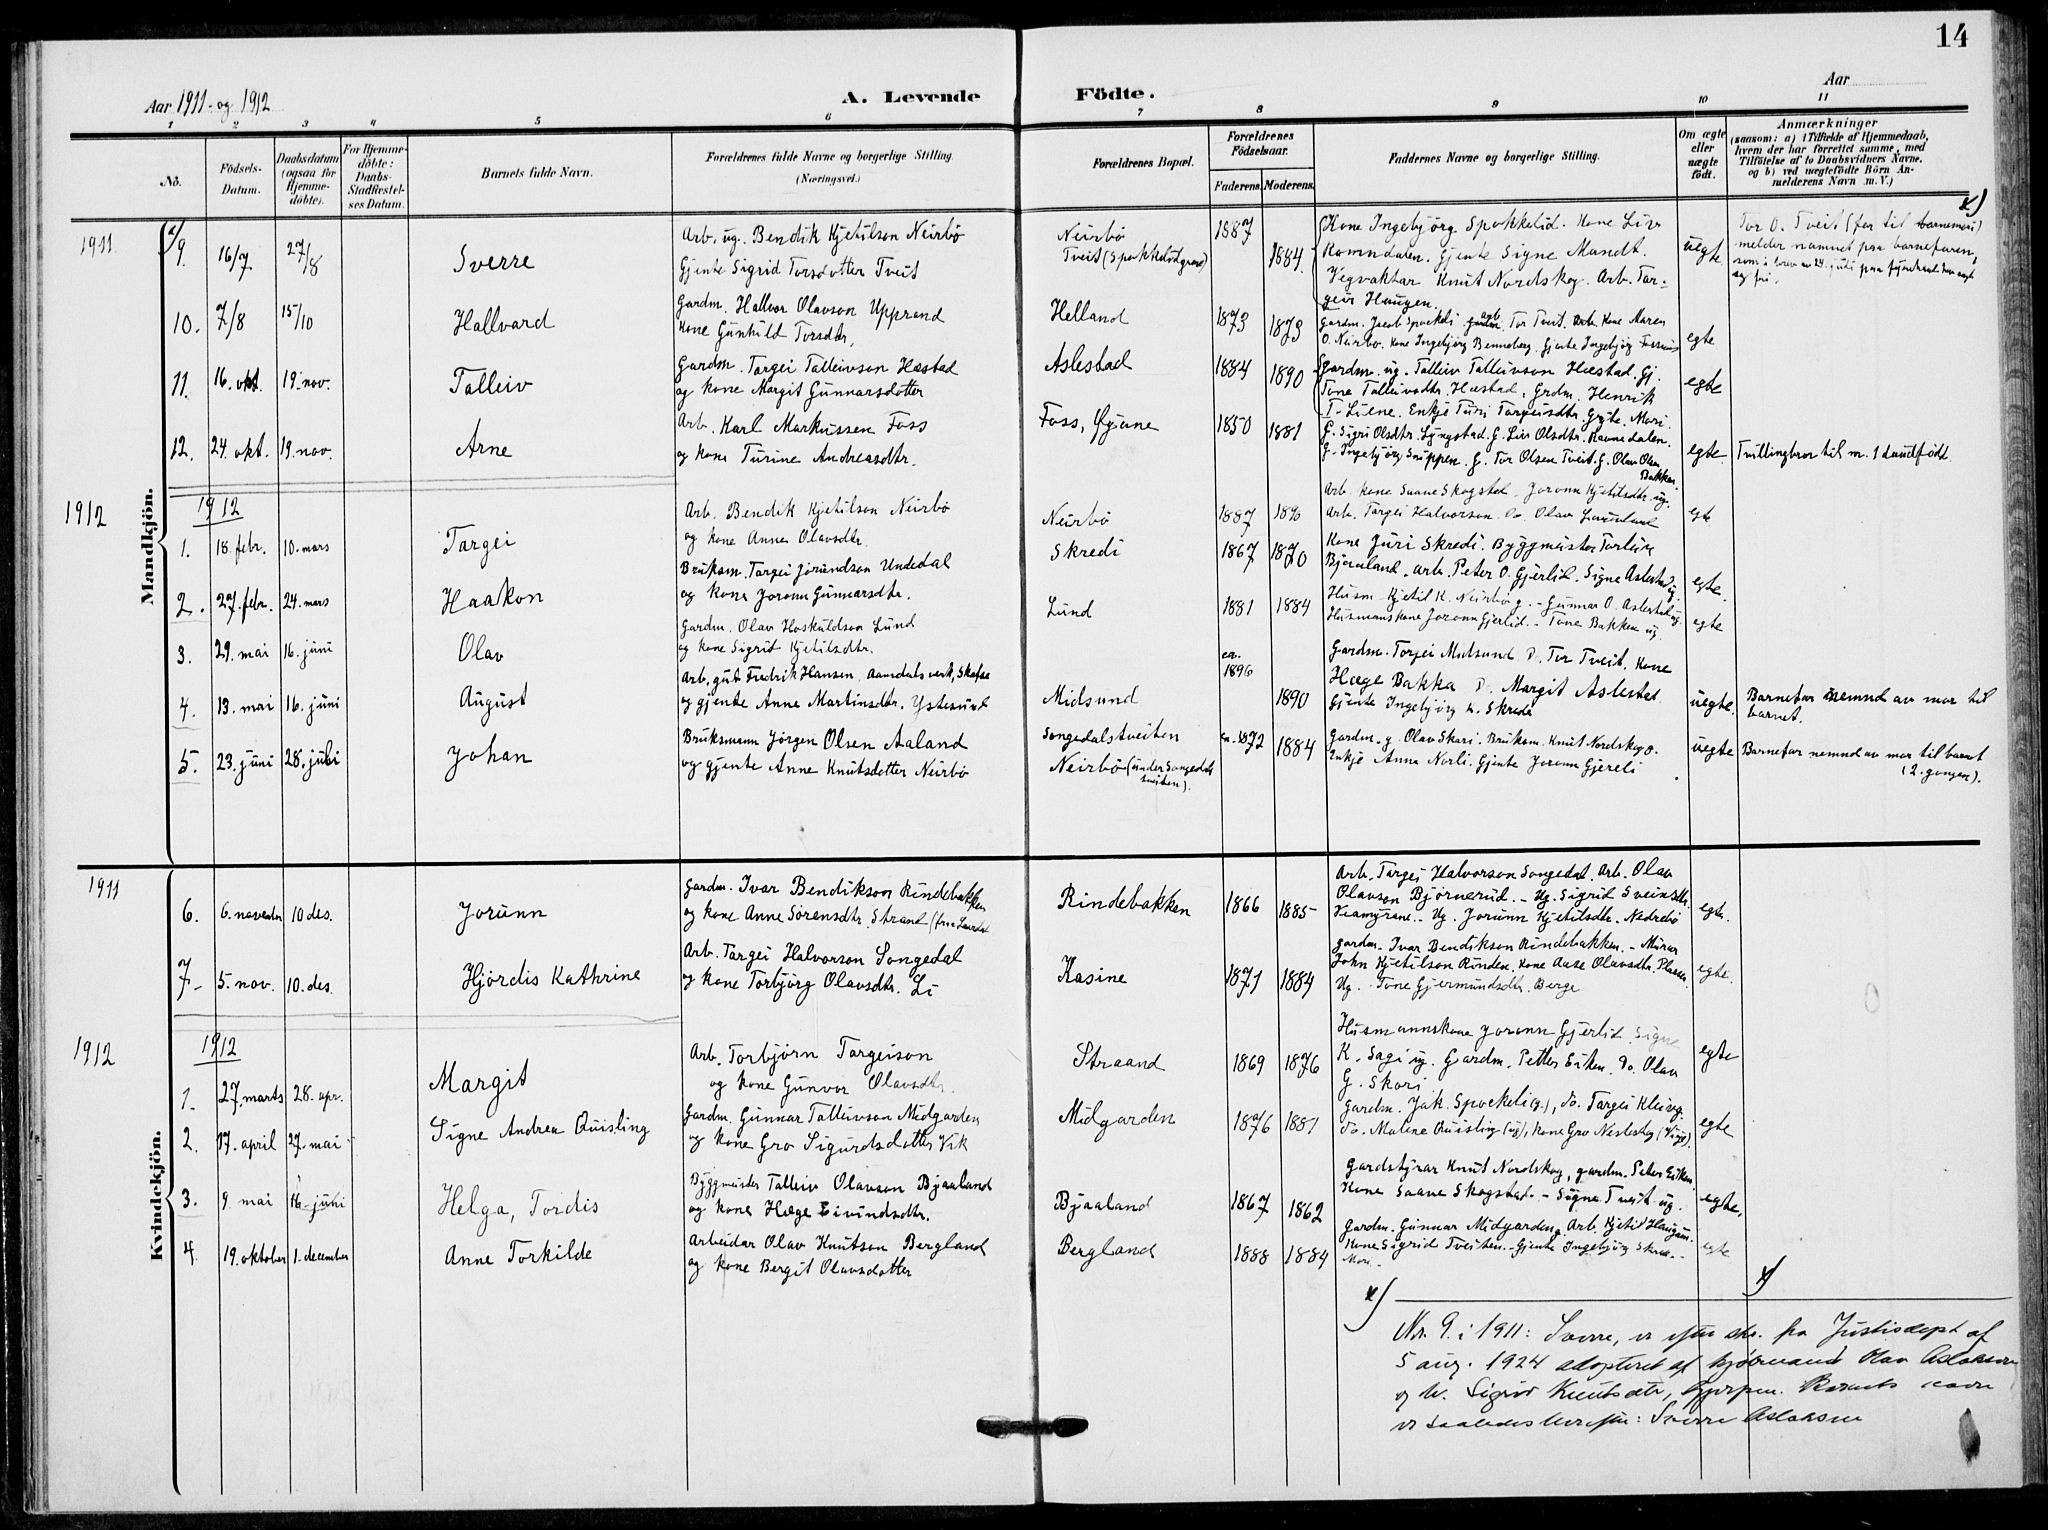 14
Aar 1911 og 1912
A. Levende Födte.
Aar
1 2 3 4 5 6 7 8 9 10 11
No.
Födsels-Datum.
Daabsdatum (ogsaa for Hjemmedöbte).
For Hjemmedöbte: Daabs-Stadfæstelses Datum.
Barnets fulde Navn.
Forældrenes fulde Navne og borgerlige Stilling. (Næringsvei.)
Forældrenes Bopæl.
Forældrenes Födselsaar.
Faderens. Moderens.
Faddernes Navne og borgerlige Stilling.
Om ægte eller uægte födt.
Anmærkninger
(saasom: a) i Tilfælde af Hjemmedaab, hvem der har forrettet samme, med Tilföielse af to Daabsvidners Navne. og b) ved uægtefödte Börn Anmelderens Navn m. V.)
Mandkjön.
1911
x) 9. 16/7 27/8 Sverre
Arb. ug. Bendik Kjetilson Neirbö
Gjente Sigrid Torsdotter Tveit
Neirbö
Tveit (Spokkeligrend)
1887 1884
Kone Ingebjörg Spokkelid. Kone Liv
Ramndalen. Gjente Signe Mandt.
Vegvaktar Knut Nordskog. Arb. Targeir Haugen.
uegte
x)
Tor O. Tveit (far til barnemori)
melder namnet paa barnefaren,
10. 7/8 15/10 Hallvard
Gardm. Hallvor Olavson Upprand
Kone Gunhild Torsdtr.
Helland 1873 1873
Gardm. Jacob Spockeli arb. Tor Tveit. Kone Maren
O. Neirbö. Kone Ingebjörg Benneberg. Gjente Ingebjörg
egte
11. 16. okt. 19. nov. Talleiv
Gardm. Targei Talleivson Hæstad
og kone Margit Gunnarsdotter
Aslestad 1884 1890
Gardm. ug. Talleiv Talleivson Hæstad. Gj.
Tone Talleivsdtr. Hæstad, Grdm. Henrik
T. Liene. Enkje Turi Targeisdtr.
egte
12. 24. okt. 19. nov. Arne
Arb. Karl Markussen Foss
og kone Turine Andreasdtr.
Foss, 1850 1881
G. Sigri Olsdtr. Lyngstad. G. Liv Olsdtr. Ravnedalen.
G. Ingebjörg Snippen. G. Tor Olsen Tveit. G. Olav Olsen Bakken.
egte. Tvillingbror til m. 1 daudfödd
1912
1912
1. 18. febr. 10. mars Targei
Arb. Bendik Kjetilson Neirbö
og kone Anne Olavsdtr.
Neirbö 1887
Arb. kone Saave Skogstad. Joronn Kjetilsdtr. ug.
Arb. Targei Halvorson. Do. Olav
egte
2. 27. febr. 24. mars Haakon
Bruksm. Targei Jorundson Undedal
og kone Joronn Gunnarsdtr.
Skredi 1867 1870
Kone Juri Skredi. Byggmeister Torleiv
Bjaaland. Arb. Peter O. Gjerlid. Signe Aslestad ug.
egte.
3. 29. mai 16. juni Olav
Gardm. Olav Hoskuldson Lund
og kone Sigrid Kjetilsdtr.
Lund 1881 1884
Husm. Kjetil K. Neirbö g. – Gunnar O. Aslestad ug.
Husmannskone Joronn Gjerlid. – Tone Bakken ug.
egte
4. 13. mai 16. juni August
Arb. gut Fredrik Hansen, Aamdals verk, Skafse
og gjente Anne Martinsdtr. Ystesund
Midsund ca. 1896 1890
Gardm. Torgei Midsund. D. Tor Tveit. Kone
Hæge Bakka D. Margit Aslestad
Gjente Ingebjörg Skredi
uegte. Barnefar nemnd av mor til
barnet.
5. 23. juni 28. juli Johan
Bruksmann Jörgen Olsen Aaland
og gjente Anne Knutsdotter Neirbö
Songedalstveiten
Neirbö (under Songedalstveiten).
ca. 1872 1884
Gardm. g. Olav Skori. Bruksm. Knut Nordskog.
Enkje Anna Norli. Gjente Joronn Gjereli
uegte Barnefar nemnd av mor til barnet
(2. gongen).
Kvindekjön.
1911
6. 6. november 10 des. Jorunn
Gardm. Ivar Bendikson Rindebakken
og kone Anne Sörensdtr. Strand
Rindebakken 1866 1885
Arb. Targei Halvorson Songedal. Arb. Olav
Olavson Björnerud. – Ug. Sigrid Sveinsdtr.
Kvamyrane. – Ug. Jorunn Kjetilsdtr. Nedrebö
egte.
7. 5. nov. 10. des. Hjördis Kathrine
Arb. Targei Halvorson Songedal
og kone Torbjörg Olavsdtr. Li
Kasine 1871 1884
Gardm. Ivar Bendikson Rindebakken. – Minar
John Kjetilson Rinden. Kone Aase Olavsdtr. Plassen
Ug. Tone Gjermundsdtr. Berge
egte.
1912
1912
1. 27. marts 28. apr. Margit
Arb. Torbjörn Targeison
og kone Gunvor Olavsdtr.
Straand 1869 1876
Husmannskone Joronn Gjerlid. Signe
K. Sagi ug. Gardm. Petter Eiken. Do. Olav
G. Skori
egte
2. 17. april 27. mai Signe Andrea Quisling
Gardm. Gunnar Talleivson Midgarden
og kone Gro Sigurdsdotter Vik
Midgarden 1876 1881
Gardm. Jak. Spockeli (g.), do. Targei Kleivg.
do. Malene Quisling (ug), kone Gro Neslestog (Vinje).
egte
3. 9. mai 16. juni Helga, Tordis
Byggmeister Talleiv Olavson Bjaaland
og kone Hæge Eivindsdtr.
Bjaaland 1867 1862
Gardstyrar Knut Nordskog, gardm. Peter Eiken.
Kone Saave Skogstad. – Signe Tveit ug.
egte.
4. 19. oktober 1. december Anne Torhilde
Arbeidar Olav Knutson Bergland
og kone Bergit Olavsdotter
Bergland 1888 1884
Gardm. Gunnar Midgarden g. Arb. Kjetil Haugum.
Kone Sigrid Tveiten. – Gjente Ingebjörg
egte
x) x)
Nr. 9 i 1911: Sverre, er efter skr. fra Justisdept af
5 aug. 1924 adopteret af Olav Aslaksen
og h. Sigrid Knutsdtr, Gjerpen. Barnets navn
er saaledes herefter: Sverre Aslaksen